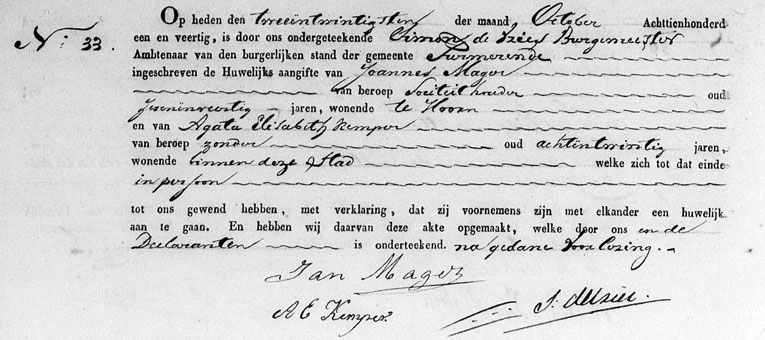 N: 33.
Op heden den tweeëntwintigsten der maand October Achttienhonderd
een en veertig, is door ons ondergeteekende Simon de Burgemeester
Ambtenaar van den burgerlijken stand der gemeente Purmerende
ingeschreven de Huwelijks aangifte van Joannes Mager
van beroep Societeit houder oud
jaren, wonende te Hoorn
en van Agata Elisabeth Kemper
van beroep zonder oud achtintwintig jaren,
wonende binnen deze Stad welke zich tot dat einde
in persoon
tot ons gewend hebben, met verklaring, dat zij voornemens zijn met elkander een huwelijk
aan te gaan. En hebben wij daarvan deze akte opgemaakt, welke door ons en de
Declaranten is onderteekend. na gedane voorlezing.
Jan Mager
A E Kemper.
S: